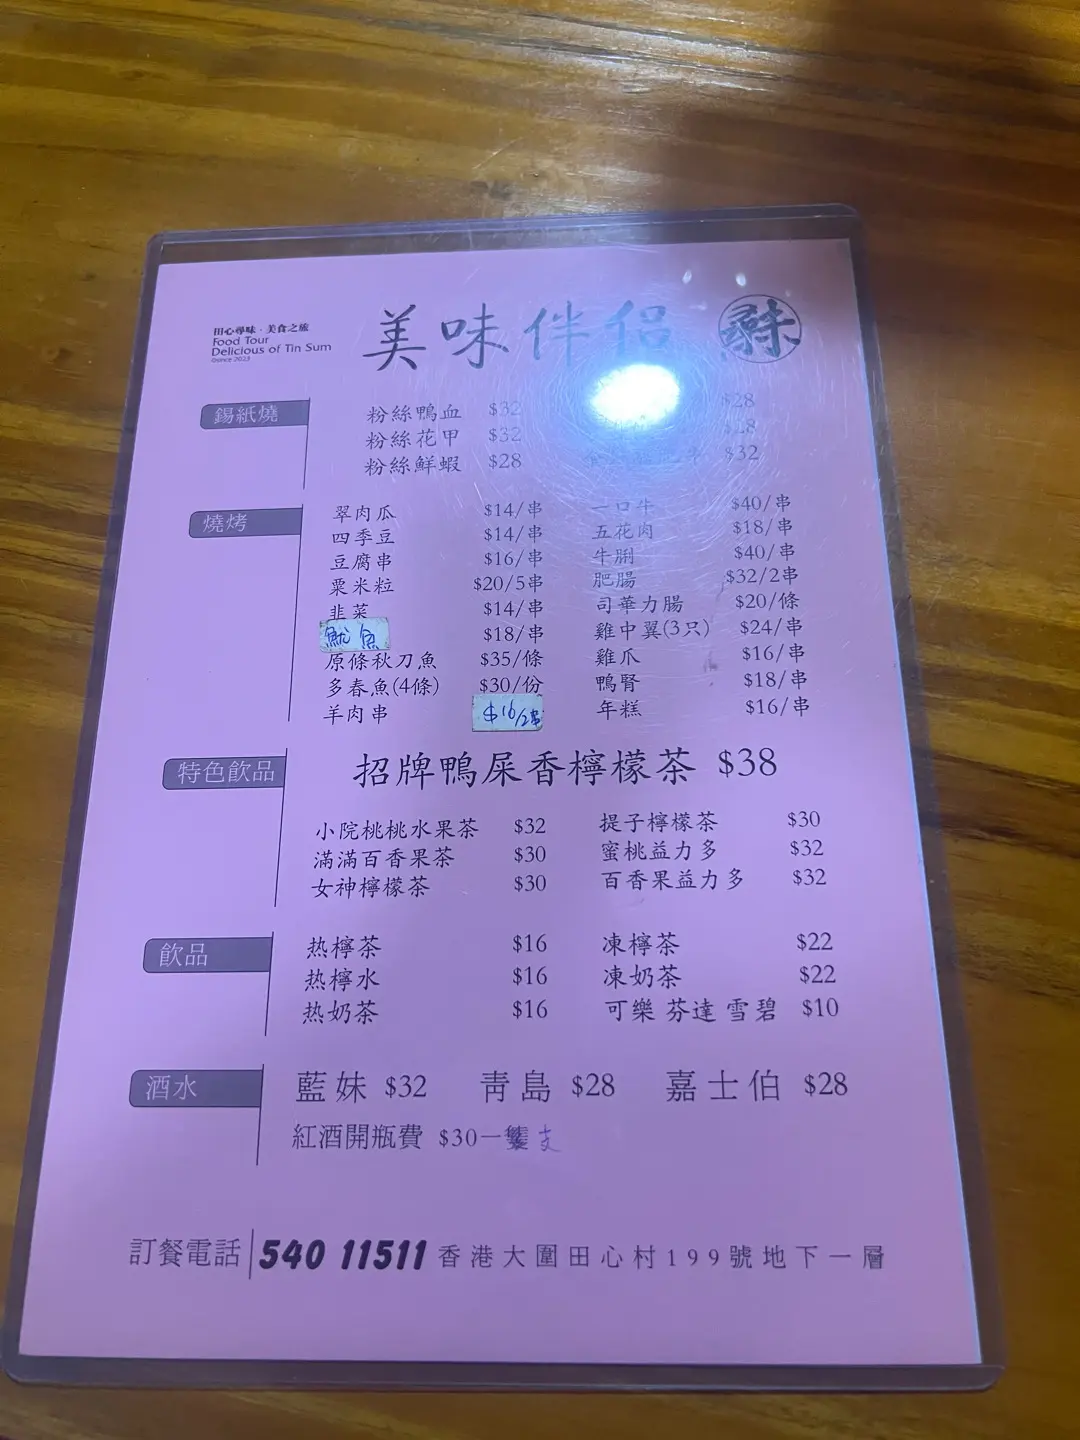 田心尋味·美食之旅
Food Tour
Delicious of Tin Sum
Since 2023
美味伴侶
錫紙燒
粉絲鴨血 $32 $28
粉絲花甲 $32 $28
粉絲鮮蝦 $28 $32
燒烤
翠肉瓜 $14/串 一口牛 $40/串
四季豆 $14/串 五花肉 $18/串
豆腐串 $16/串 牛脷 $40/串
粟米粒 $20/5串 肥腸 $32/2串
韭菜 $14/串 司華力腸 $20/條
魷魚 $18/串 雞中翼(3只) $24/串
原條秋刀魚 $35/條 雞爪 $16/串
多春魚(4條) $30/份 鴨腎 $18/串
羊肉串 $16/2串 年糕 $16/串
特色飲品
招牌鴨屎香檸檬茶 $38
小院桃桃水果茶 $32 提子檸檬茶 $30
滿滿百香果茶 $30 蜜桃益力多 $32
女神檸檬茶 $30 百香果益力多 $32
飲品
热檸茶 $16 凍檸茶 $22
热檸水 $16 凍奶茶 $22
热奶茶 $16 可樂 芬達 雪碧 $10
酒水
藍妹 $32 青島 $28 嘉士伯 $28
紅酒開瓶費 $30一支
訂餐電話 540 11511 香港大圍田心村199號地下一層